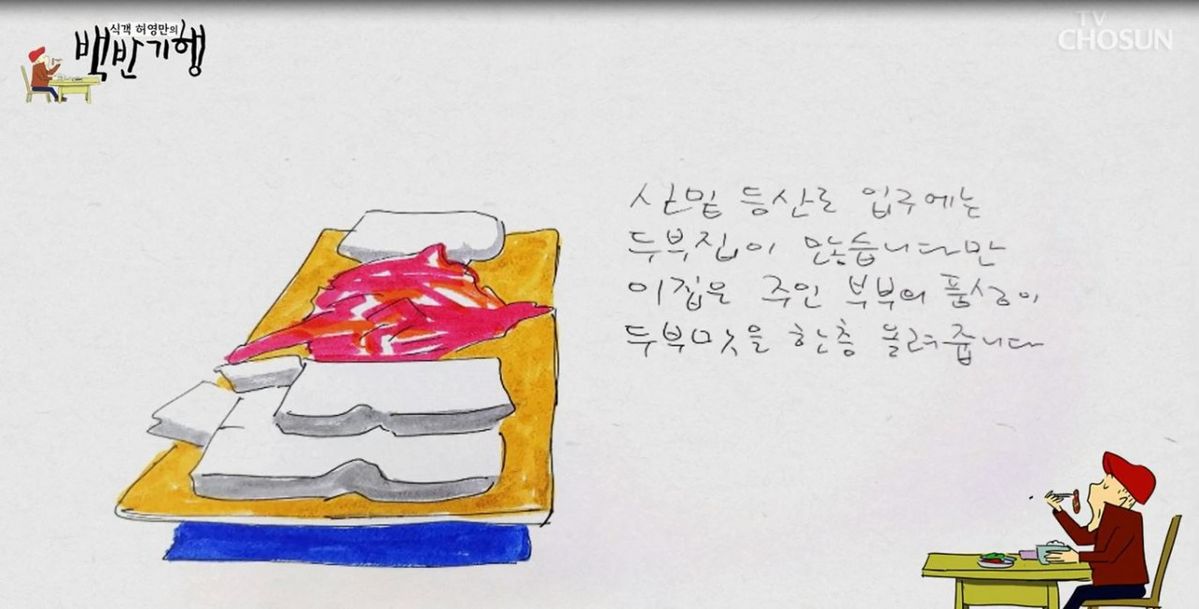 식객 허영만의
백반기행
TV
CHOSUN
산밑 등산로 입구에는
두부집이 많습니다만
이집은 주인 부부의 품성이
두부맛을 한층 올려줍니다